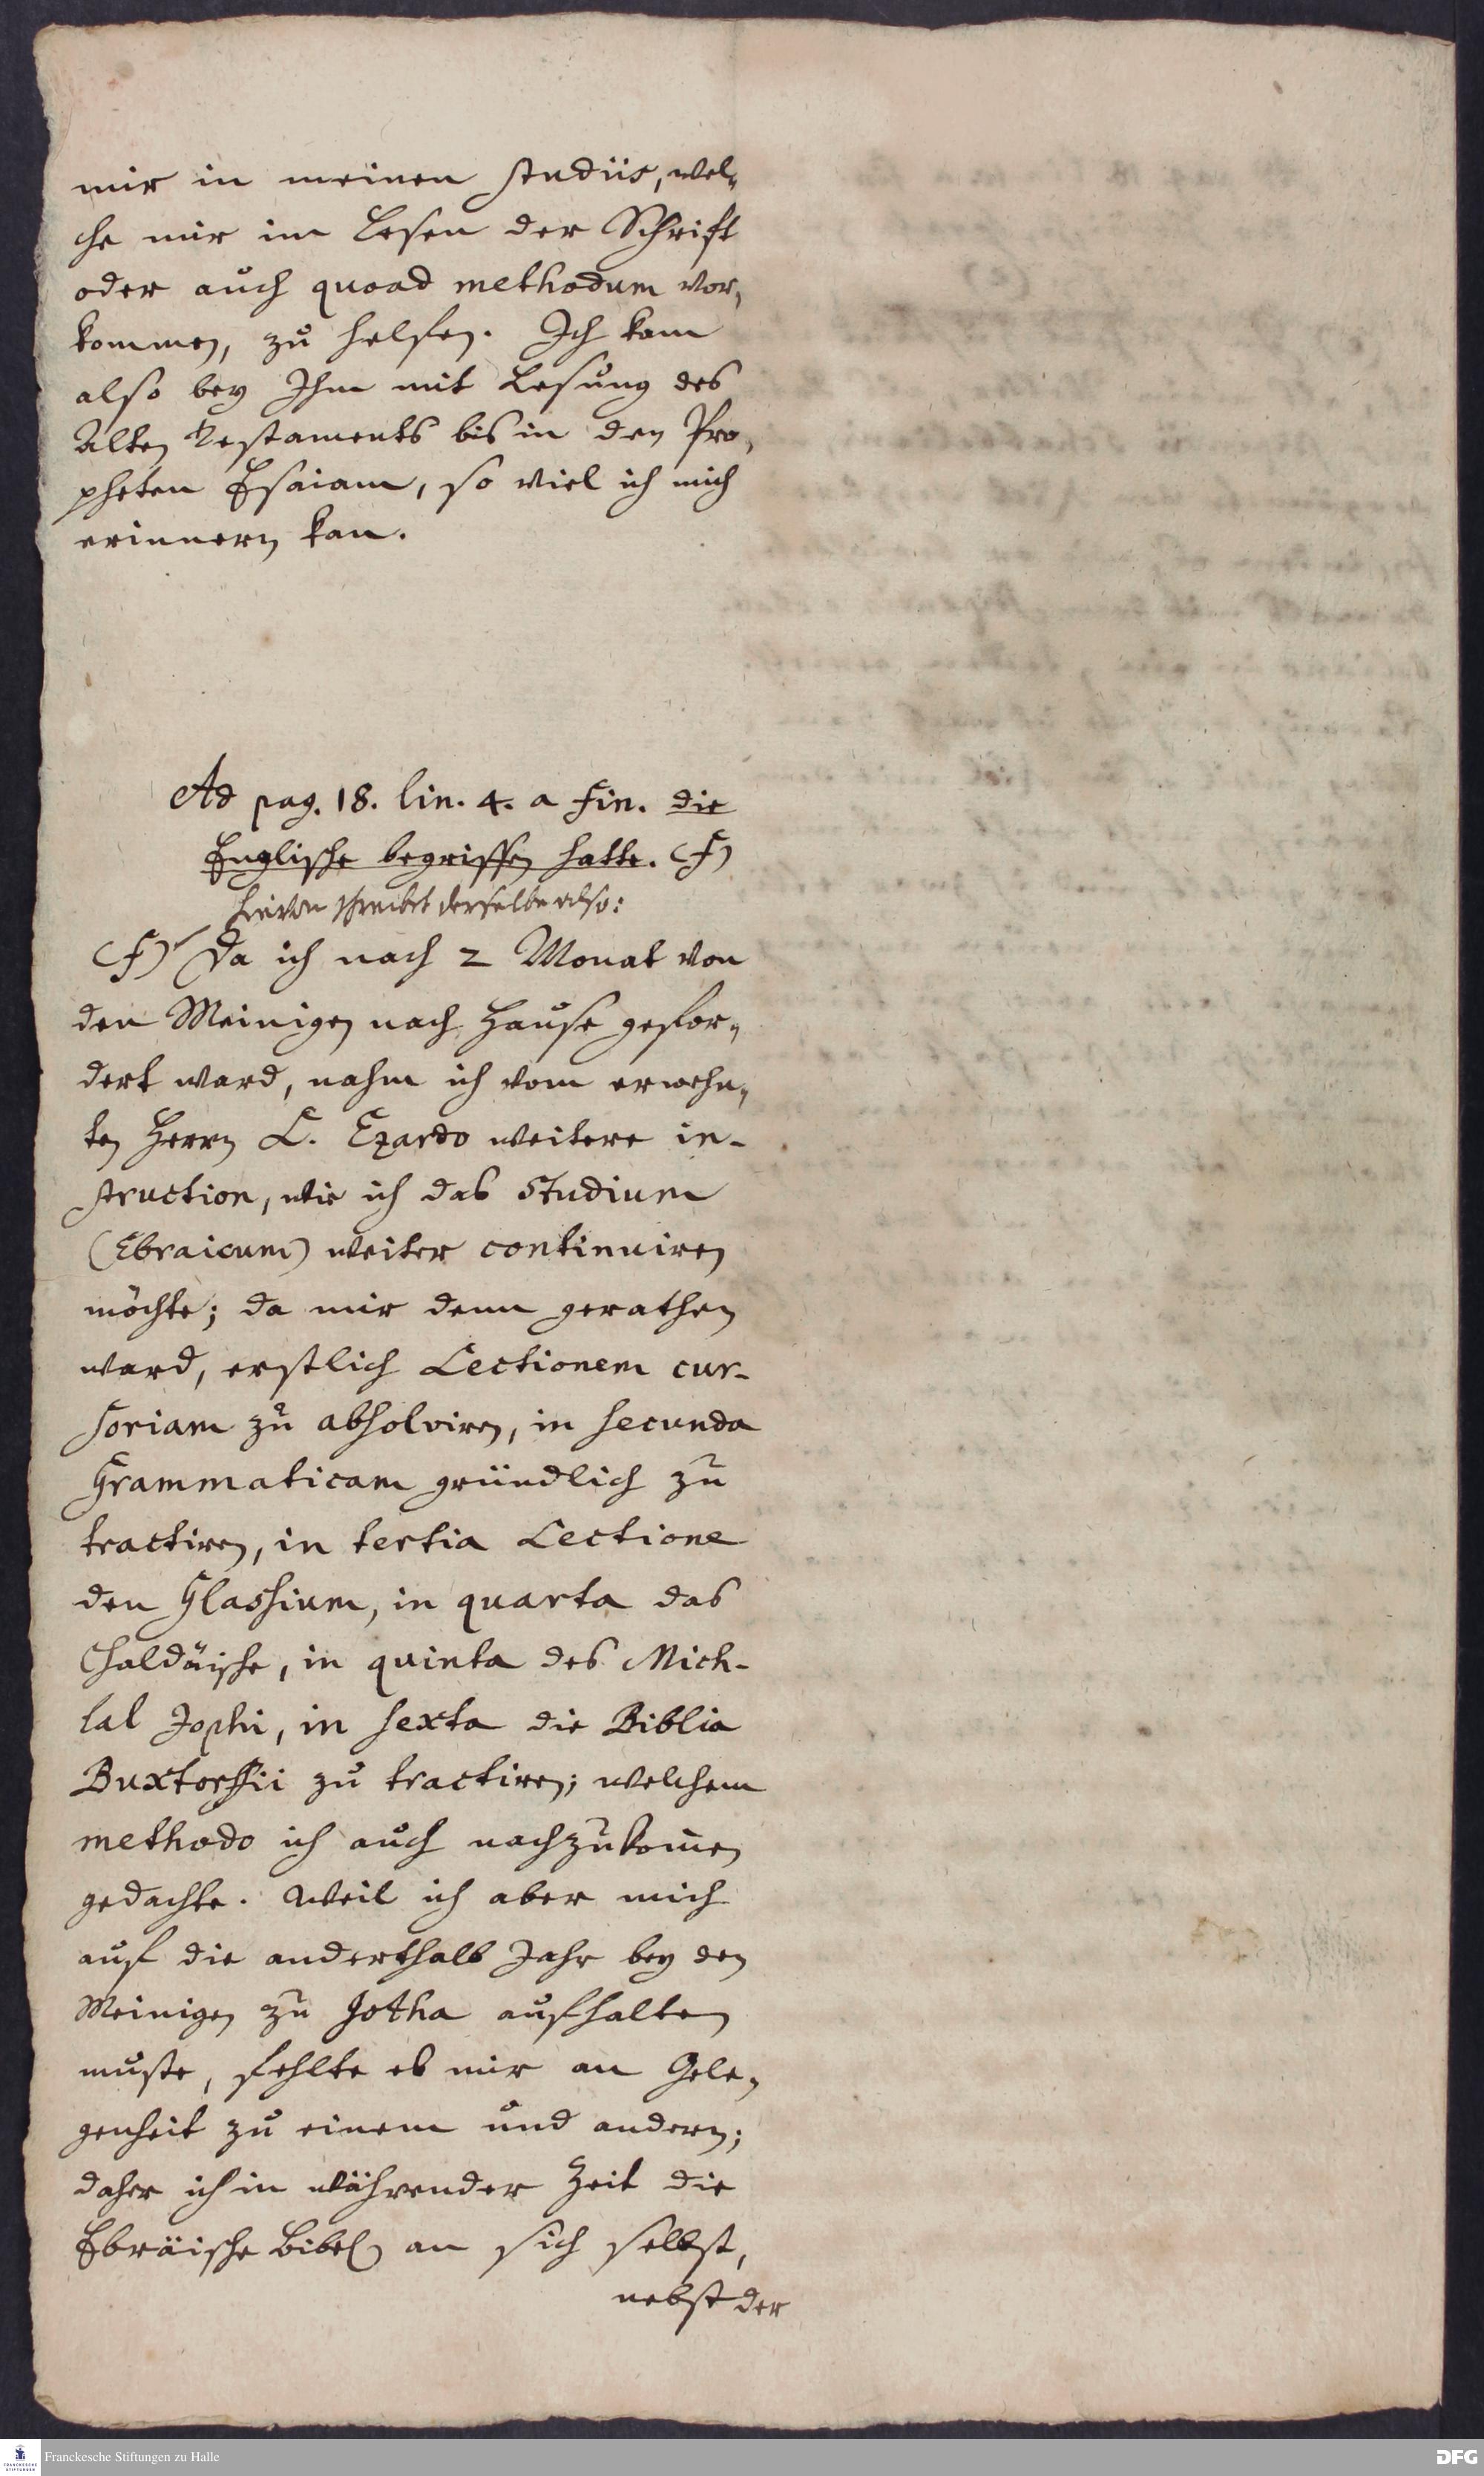 mir in meinen studiis, wel-
che mir im Lesen der Schrift
oder auch quoad methodum vor-
kommen, zu helfen. Ich kam
also bey Ihm mit Lesung des
Alten Testaments bis in den Pro-
pheten Esaiam, so viel ich mich
erinnern kan.
Ad pag. 18. lin. 4. a fin. die
Englische begriffen hatte. (f)
hievon schreibet derselbe also:
(f) Da ich nach 2 Monat von
den Meinigen nach Hause gefor-
dert ward, nahm ich vom erwehn-
ten Herrn L. Ezardo weitere in-
struction, wie ich das Studium
(Ebraicum) weiter continuiren
möchte; da mir denn gerathen
ward, erstlich Lectionem cur-
soriam zu absolviren, in secunda
Grammaticam gründlich zu
tractiren, in tertia Lectione
den Glassium, in quarta das
Chaldäische, in quinta des Mich-
lal Jophi, in sexta die Biblia
Buxtorffii zu tractiren; welchem
methodo ich auch nachzukom̅en
gedachte. Weil ich aber mich
auf die anderthalb Jahr bey den
Meinigen zu Gotha aufhalten
muste, fehlte es mir an Gele-
genheit zu einem und andern;
daher ich in währender Zeit die
Ebräische Bibel an sich selbst,
nebst der
Franckesche Stiftungen zu Halle
FRANCKESCHE STIFTUNGEN
DFG